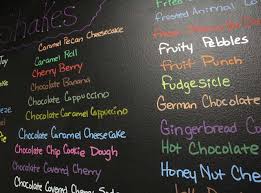 Shakes
Caramel Pecan Cheesecake
Caramel Roll
Cherry Berry
Chocolate Banana
Chocolate Cappuccino
Chocolate Caramel Cappuccino
Chocolate Caramel Cheesecake
Chocolate Chip Cookie Dough
Chocolate Covered Cherry
Chocolate Covered
Frosted Animal
Fruity Pebbles
Fruit Punch
Fudgesicle
German Chocolate
Gingerbread
Hot Chocolate
Honey Nut